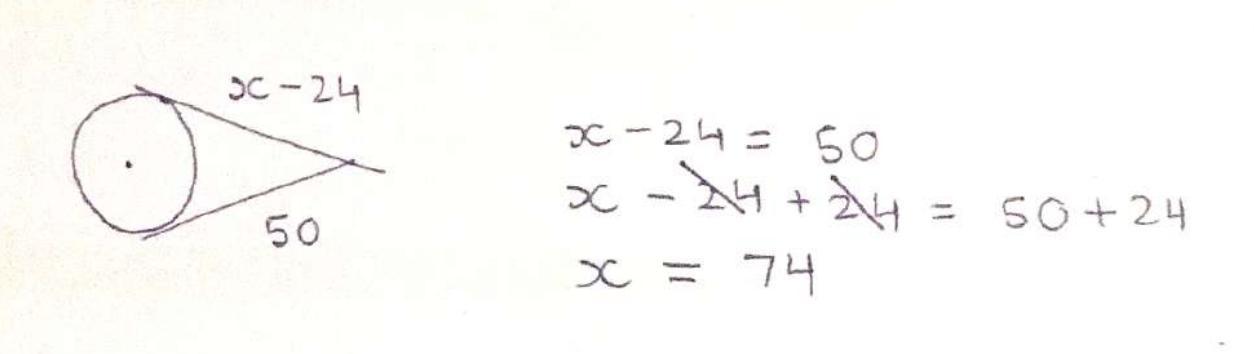 x - 24
50
x - 24 = 50
x - 24 + 24 = 50 + 24
x = 74